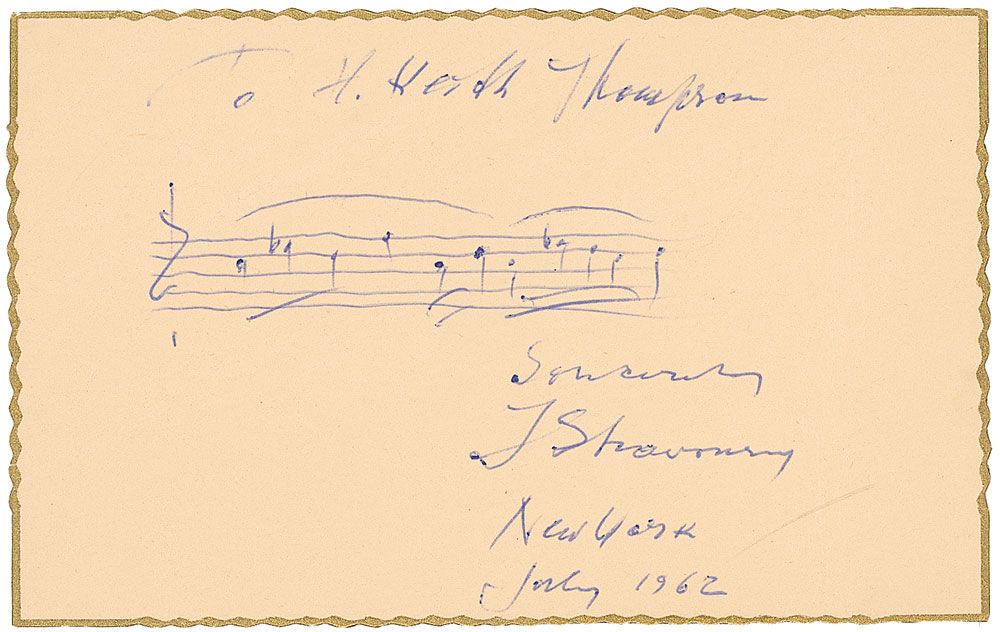 To H. Keith Thompson
Sincerely
I Stravinsky
New York
July 1962